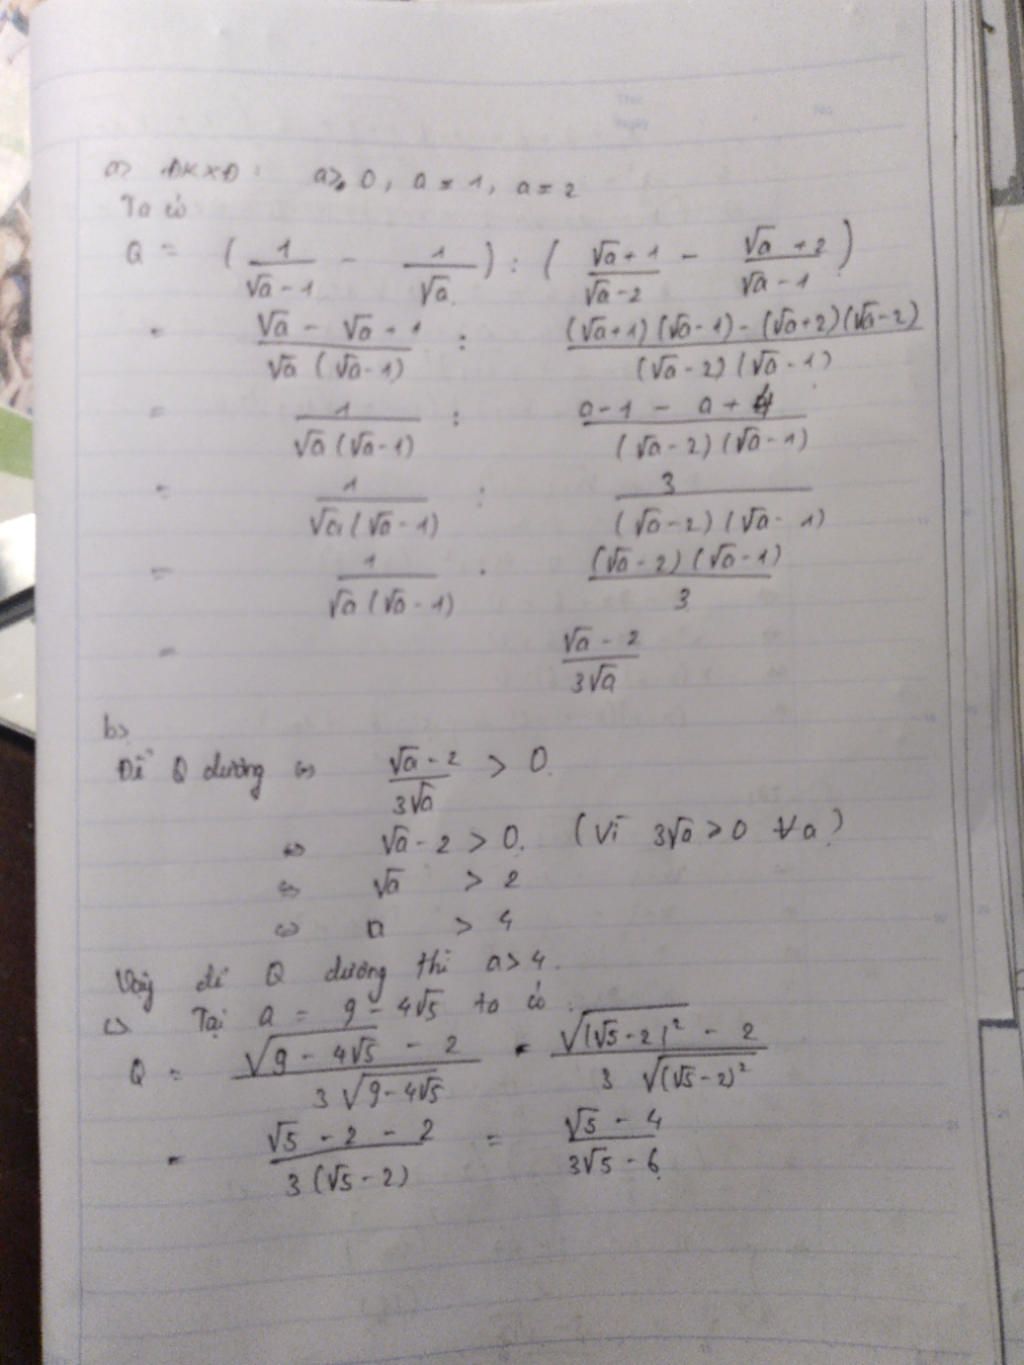 a> ĐKXĐ: a ≥ 0, a = 1, a = 2
Ta có
Q = ( 1/(√a - 1) - 1/√a ) : ( (√a + 1)/(√a - 2) - (√a + 2)/(√a - 1) )
= (√a - √a + 1)/(√a (√a - 1)) : ((√a + 1)(√a - 1) - (√a + 2)(√a - 2))/((√a - 2)(√a - 1))
= 1/(√a (√a - 1)) : (a - 1 - a + 4)/((√a - 2)(√a - 1))
= 1/(√a (√a - 1)) : 3/((√a - 2)(√a - 1))
= 1/(√a (√a - 1)) . ((√a - 2)(√a - 1))/3
= (√a - 2)/(3√a)
b>
Để Q dương ⇔ (√a - 2)/(3√a) > 0.
⇔ √a - 2 > 0. (Vì 3√a > 0 ∀a)
⇔ √a > 2
⇔ a > 4
Vậy để Q dương thì a > 4.
c> Tại a = 9 - 4√5 ta có :
Q = (√(9 - 4√5) - 2)/(3√(9 - 4√5)) = (√((√5 - 2)²) - 2)/(3 √((√5 - 2)²))
= (√5 - 2 - 2)/(3 (√5 - 2)) = (√5 - 4)/(3√5 - 6)